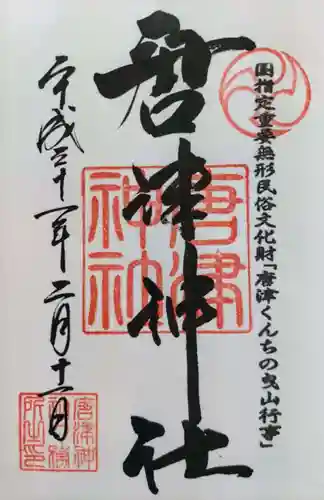 国指定重要無形民俗文化財「唐津くんちの曳山行事」
唐津神社
唐津
神社
平成三十一年二月十一日
唐津神